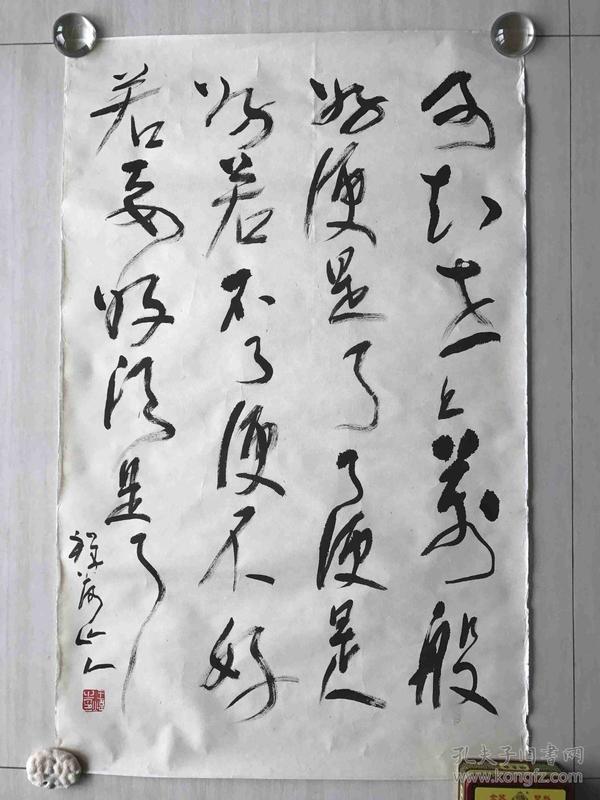 可知世上萬般
好便是了了便是
好若不了便不好
若要好須是了
山人
孔夫子旧书网
www.kongfz.com